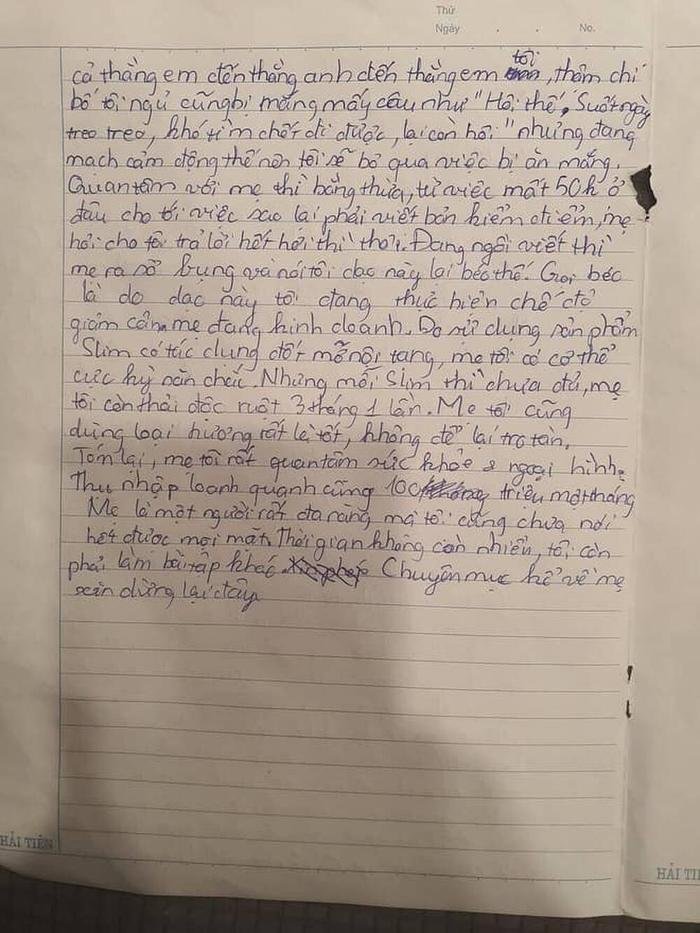 Thứ
Ngày . . No.
cả thằng em đến thằng anh đến thằng em tôi, thậm chí
bố tôi ngủ cũng bị mắng mấy câu như "Hôi thế, Suốt ngày
treo treo, khó tìm chết đi được, lại còn hôi" nhưng đang
mạch cảm động thế nên tôi sẽ bỏ qua việc bị ăn mắng.
Quan tâm với mẹ thì bằng thừa, từ việc mất 50k ở
đâu cho tới việc sao lại phải viết bản kiểm điểm, mẹ
hỏi cho tôi trả lời hết hơi thì thôi. Đang ngồi viết thì
mẹ ra sờ bụng và nói tôi dạo này lại béo thế. Gọi béo
là do dạo này tôi đang thực hiện chế độ
giảm cân mẹ đang kinh doanh. Do sử dụng sản phẩm
Slim có tác dụng đốt mỡ nội tạng, mẹ tôi có cơ thể
cực kỳ săn chắc. Nhưng mỗi Slim thì chưa đủ, mẹ
tôi còn thải độc ruột 3 tháng 1 lần. Mẹ tôi cũng
dùng loại hương rất là tốt, không để lại tro tàn.
Tóm lại, mẹ tôi rất quan tâm sức khỏe & ngoại hình.
Thu nhập loanh quanh cũng 100 triệu một tháng
Mẹ là một người rất đa năng mà tôi cũng chưa nói
hết được mọi mặt. Thời gian không còn nhiều, tôi còn
phải làm bài tập khác Chuyên mục kể về mẹ
xin dừng lại đây
HẢI TIẾN
HẢI TI